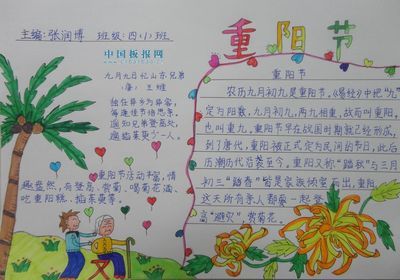 主编:张润博 班级:四(小)班
中国板报网
重阳节
九月九日忆山东兄弟
(唐) 王维
独在异乡为异客,
每逢佳节倍思亲。
遥知兄弟登高处,
遍插茱萸少一人。
重阳节活动丰富,情
趣盎然,有登高、赏菊、喝菊花酒、
吃重阳糕、插茱萸等。
重阳节
农历九月初九是重阳节。《易经》中把“九”
定为阳数,九月初九,两九相重,故而叫重阳,
也叫重九。重阳节早在战国时期就已经形成,
到了唐代,重阳被正式定为民间的节日,此后
历朝历代沿袭至今。重阳又称“踏秋”与三月
初三“踏春”皆是家族倾室而出,重阳
这天所有亲人都要一起登
高“避灾”,赏菊花。